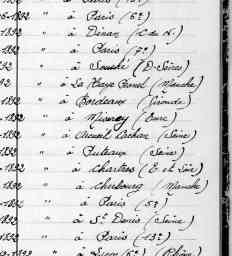 " à Paris (6e)
6-1892 " à Paris (5e)
1892 " à Dinan (C du N.)
1892 " à Paris (7e)
1892 " à Souché (D-Sèvres)
92 " à La Haye Pesnel (Manche)
1892 " à Bordeaux (Gironde)
1892 " à (Eure)
-1892 " à Arcueil Cachan (Seine)
1892 " à Puteaux (Seine)
-1892 " à Chartres (E et Loir)
-1892 " à Cherbourg (Manche)
-1892 " à Paris (5e)
1892 " à St Denis (Seine)
-1892 " à Paris (13e)
-1892 " à Lyon (6e) (Rhône)